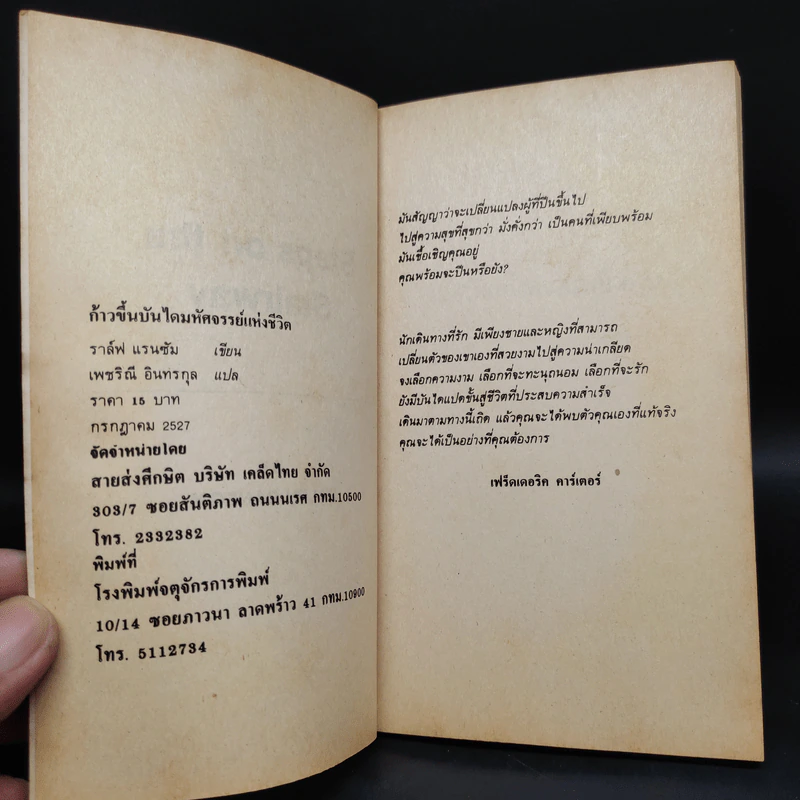 ก้าวขึ้นบันไดมหัศจรรย์แห่งชีวิต
ราล์ฟ แรนซัม เขียน
เพชริณี อินทรกุล แปล
ราคา 15 บาท
กรกฎาคม 2527
จัดจำหน่ายโดย
สายส่งศึกษิต บริษัท เคล็ดไทย จำกัด
303/7 ซอยสันติภาพ ถนนนเรศ กทม.10500
โทร. 2332382
พิมพ์ที่
โรงพิมพ์จตุจักรการพิมพ์
10/14 ซอยภาวนา ลาดพร้าว 41 กทม.10900
โทร. 5112734
มันสัญญาว่าจะเปลี่ยนแปลงผู้ที่ปีนขึ้นไป
ไปสู่ความสุขที่สุขกว่า มั่งคั่งกว่า เป็นคนที่เพียบพร้อม
มันเชื้อเชิญคุณอยู่
คุณพร้อมจะปีนหรือยัง?
นักเดินทางที่รัก มีเพียงชายและหญิงที่สามารถ
เปลี่ยนตัวของเขาเองที่สวยงามไปสู่ความน่าเกลียด
จงเลือกความงาม เลือกที่จะทะนุถนอม เลือกที่จะรัก
ยังมีบันไดแปดขั้นสู่ชีวิตที่ประสบความสำเร็จ
เดินมาตามทางนี้เถิด แล้วคุณจะได้พบตัวคุณเองที่แท้จริง
คุณจะได้เป็นอย่างที่คุณต้องการ
เฟร็ดเดอริค คาร์เตอร์